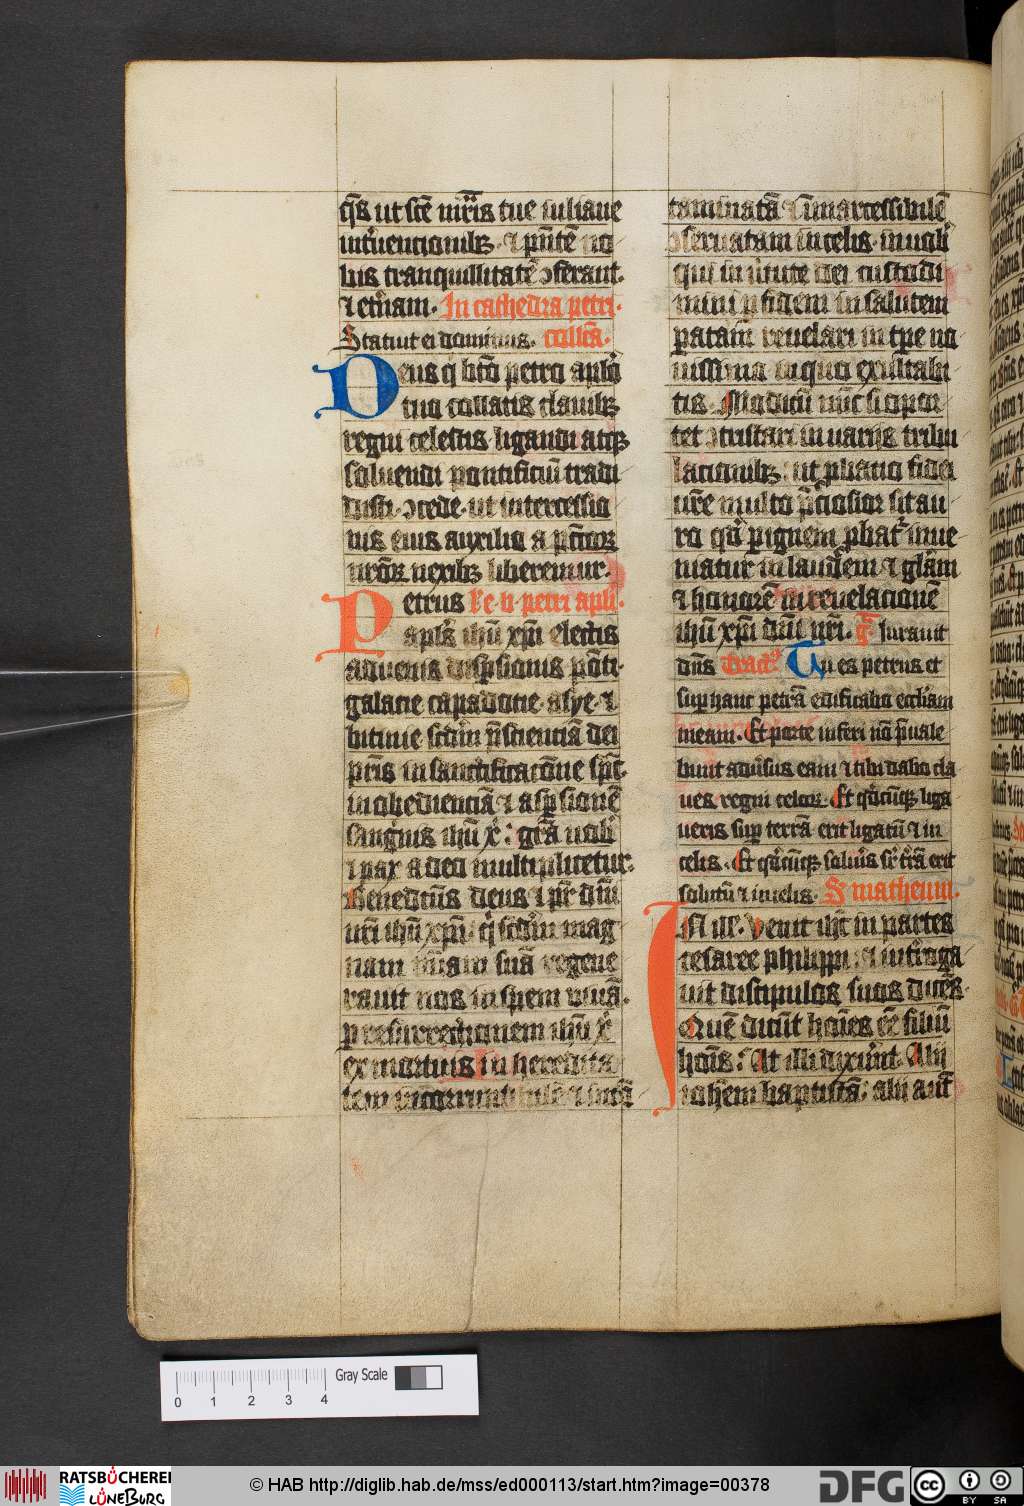 q̄s ut scē mr̄is tue iuliane
int͛uencionibꝫ · ⁊ p̄ntē no
bis tranquillitatē ꝯferant.
⁊ et͛nam · In cathedra petri ·
Statuit ei dominus . collc̄a.
Deus q̇ bt̄o petro aplō
tuo collatis clauibꝫ
regni celestis ligandi atqꝫ
soluendi pontificiū tradi
disti · ꝯcede · ut intercessio
nis eius auxilio a pc̄coꝝ
nr̄oꝝ nexibꝫ liberemur.
Petrus Lc̄ b petri apli.
apls̄ ihū xp̄i electis
aduenis disp̱sionis pōti ·
galacie capadocie · asye · ⁊
bitinie scd̄m p̄scienciā dei
pr̄is in sanctificacōne sp̄c
in obedienciā ⁊ asp̱sionē
sang͛nis ihū x͛ : gr̄a uob͛
⁊ pax a deo multiplicetur.
Benedictūs deus ⁊ pr̄ dnī
nr̄i ihū xp̄i · q͛ scd̄m mag
nam mīam suā regene
rauit nos in spem viuā ·
p̱ resurrectionem ihū x͛
ex mortuis in heredita
tem incorruptibilē ⁊ incō
taminatā ⁊ īmarcessibilē
ꝯseruatam in celis · in uob͛
qui in ūtute dei custodi
mini p̱ fidem in salutem
paratam reuelari in tp̄e no
uissimo · in quo exultabi
tis · Modicū nūc si opor
tet ꝯtristari in uariis tribu
lacionibꝫ : ut p̱batio fidei
ur̄e multo p̄ciosior sit au
ro qd̄ p̱ ignem p̱bat͛ · inue
niatur in laudem ⁊ glām
⁊ honorē in reuelacionē
ihū xp̄i dnī nr̄i . G̊ Iurauit
dn̄s Tract͛ Tu es petrus et
sup̱ hanc petrā edificabo eccl̄iam
meam · Et porte inferi nō p̄uale
bunt adūsus eam ⁊ tibi dabo cla
ues regni celoꝝ · Et qd̄cūqꝫ liga
ueris sup̱ terrā erit ligatū ⁊ in
celis · Et qd̄cūqꝫ solūis sr̄ tr̄ā erit
solutū ⁊ in celis · S matheum ·
IN ill̄ · Venit ihc̄ in partes
cesaree philippi : ⁊ int͛roga
uit discipulos suos dicēs ·
Quē dicūt hoīes eē filiū
hoīs : At illi dixerūt · Alii
iohēm baptistā : alii aut̄
0 1 2 3 4 Gray Scale
RATSBÜCHEREI
LÜNEBURG
© HAB http://diglib.hab.de/mss/ed000113/start.htm?image=00378
DFG
cc BY SA